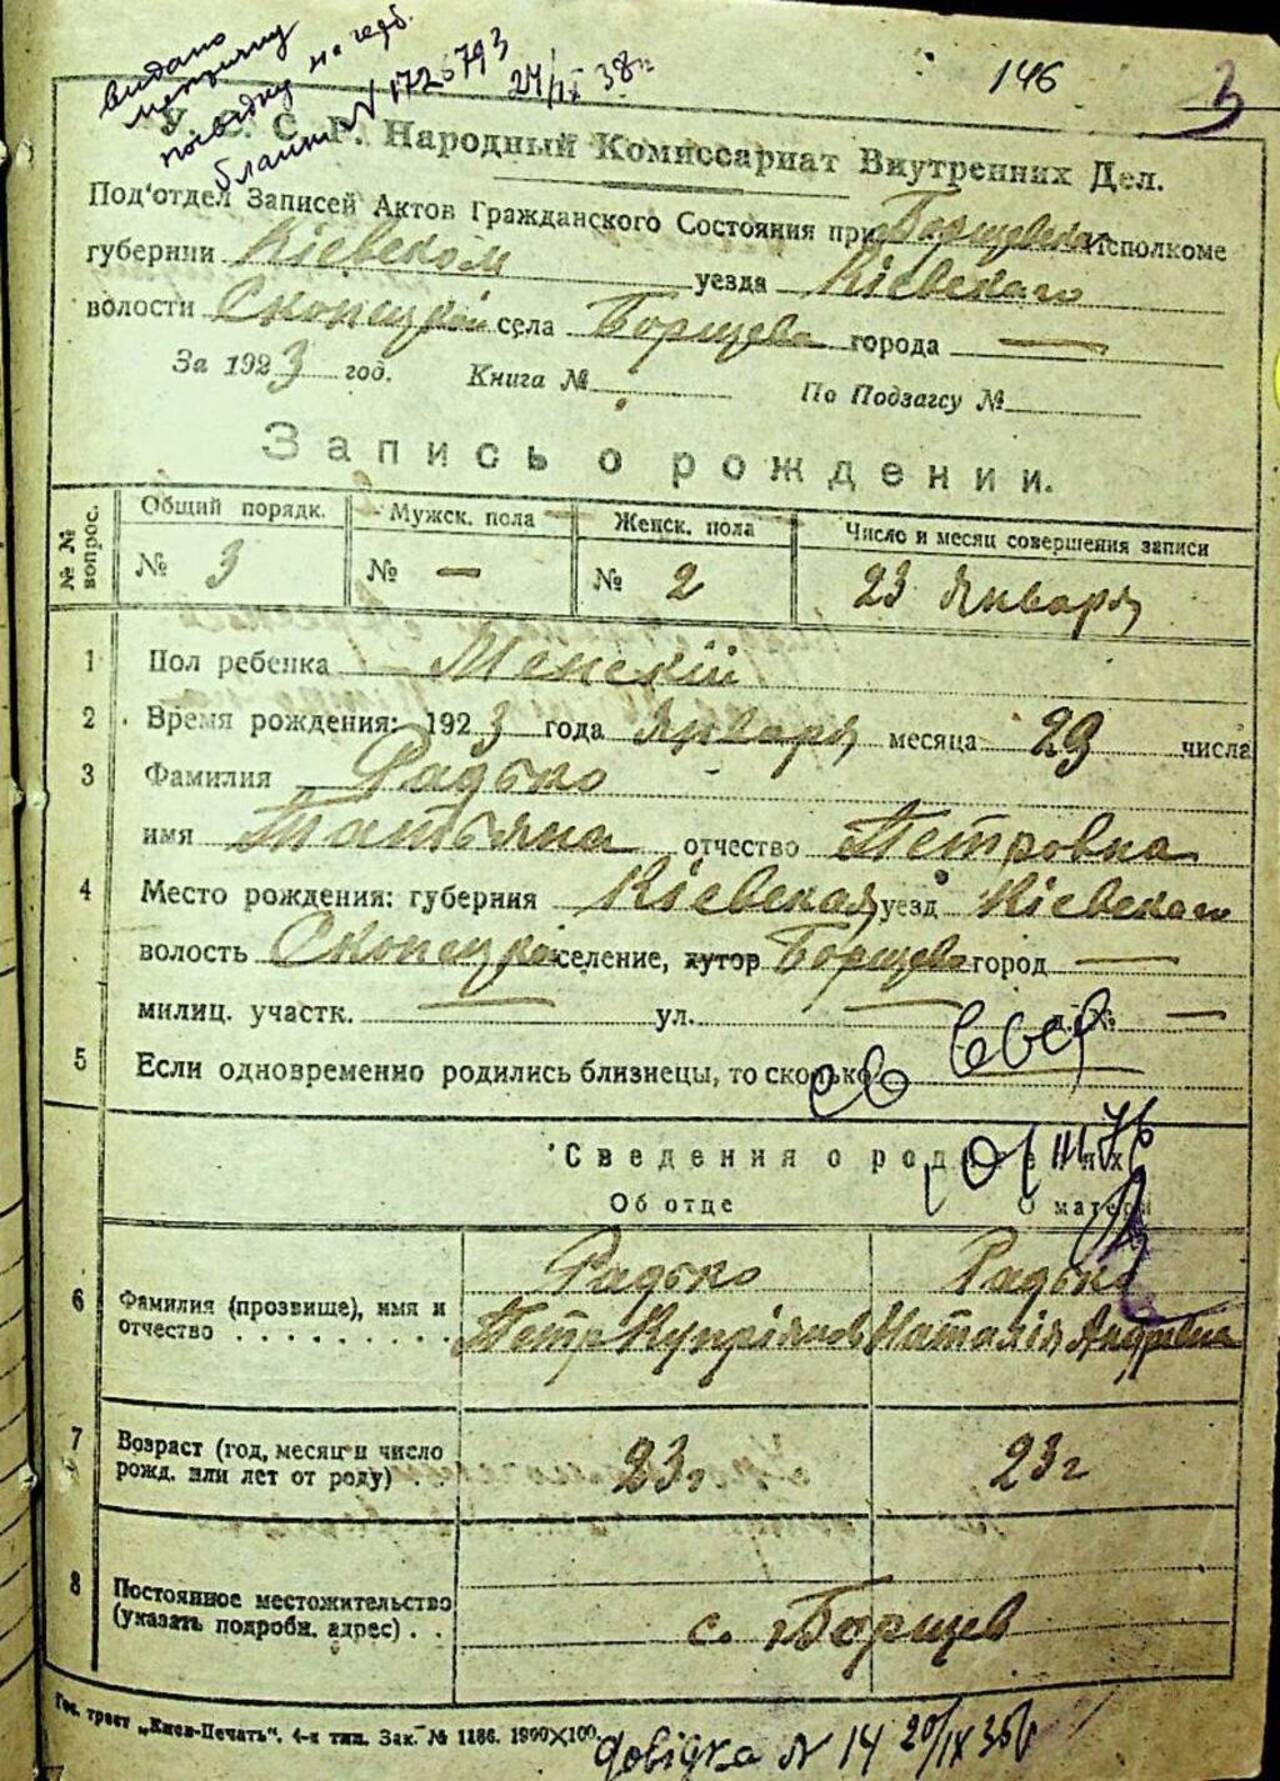 видано
метричну
посвідку на герб.
бланкі N 1726793
24/IX 38р
146
3
У. С. С. Р. Народный Комиссариат Внутренних Дел.
Под'отдел Записей Актов Гражданского Состояния при Борщевском Исполкоме
губернии Кіевском уезда Кіевскаго
волости Скопецкой села Борщева города —
За 1923 год. Книга № По Подзагсу №
Запись о рождении.
№ № вопрос. Общий порядк. Мужск. пола Женск. пола Число и месяц совершения записи
№ 3 № — № 2 23 Января
1 Пол ребенка Женскій
2 Время рождения: 1923 года Января месяца 29 числа
3 Фамилия Радько
имя Татьяна отчество Петровна
4 Место рождения: губерния Кіевская уезд Кіевскаго
волость Скопецкой селение, хутор Борщев город —
милиц. участк. — ул. — д. № —
5 Если одновременно родились близнецы, то сколько
Сведения о родителях
Об отце О матери
6 Фамилия (прозвище), имя и отчество Радько Радько
Петр Купріянов Наталія Андреевна
7 Возраст (год, месяц и число рожд. или лет от роду) 23г 23г
8 Постоянное местожительство (указать подробн. адрес) с. Борщев
Гос. трест „Киев-Печать“. 4-я тип. Зак. № 1186. 1900×100.
довідка N 14 20/IX 35р